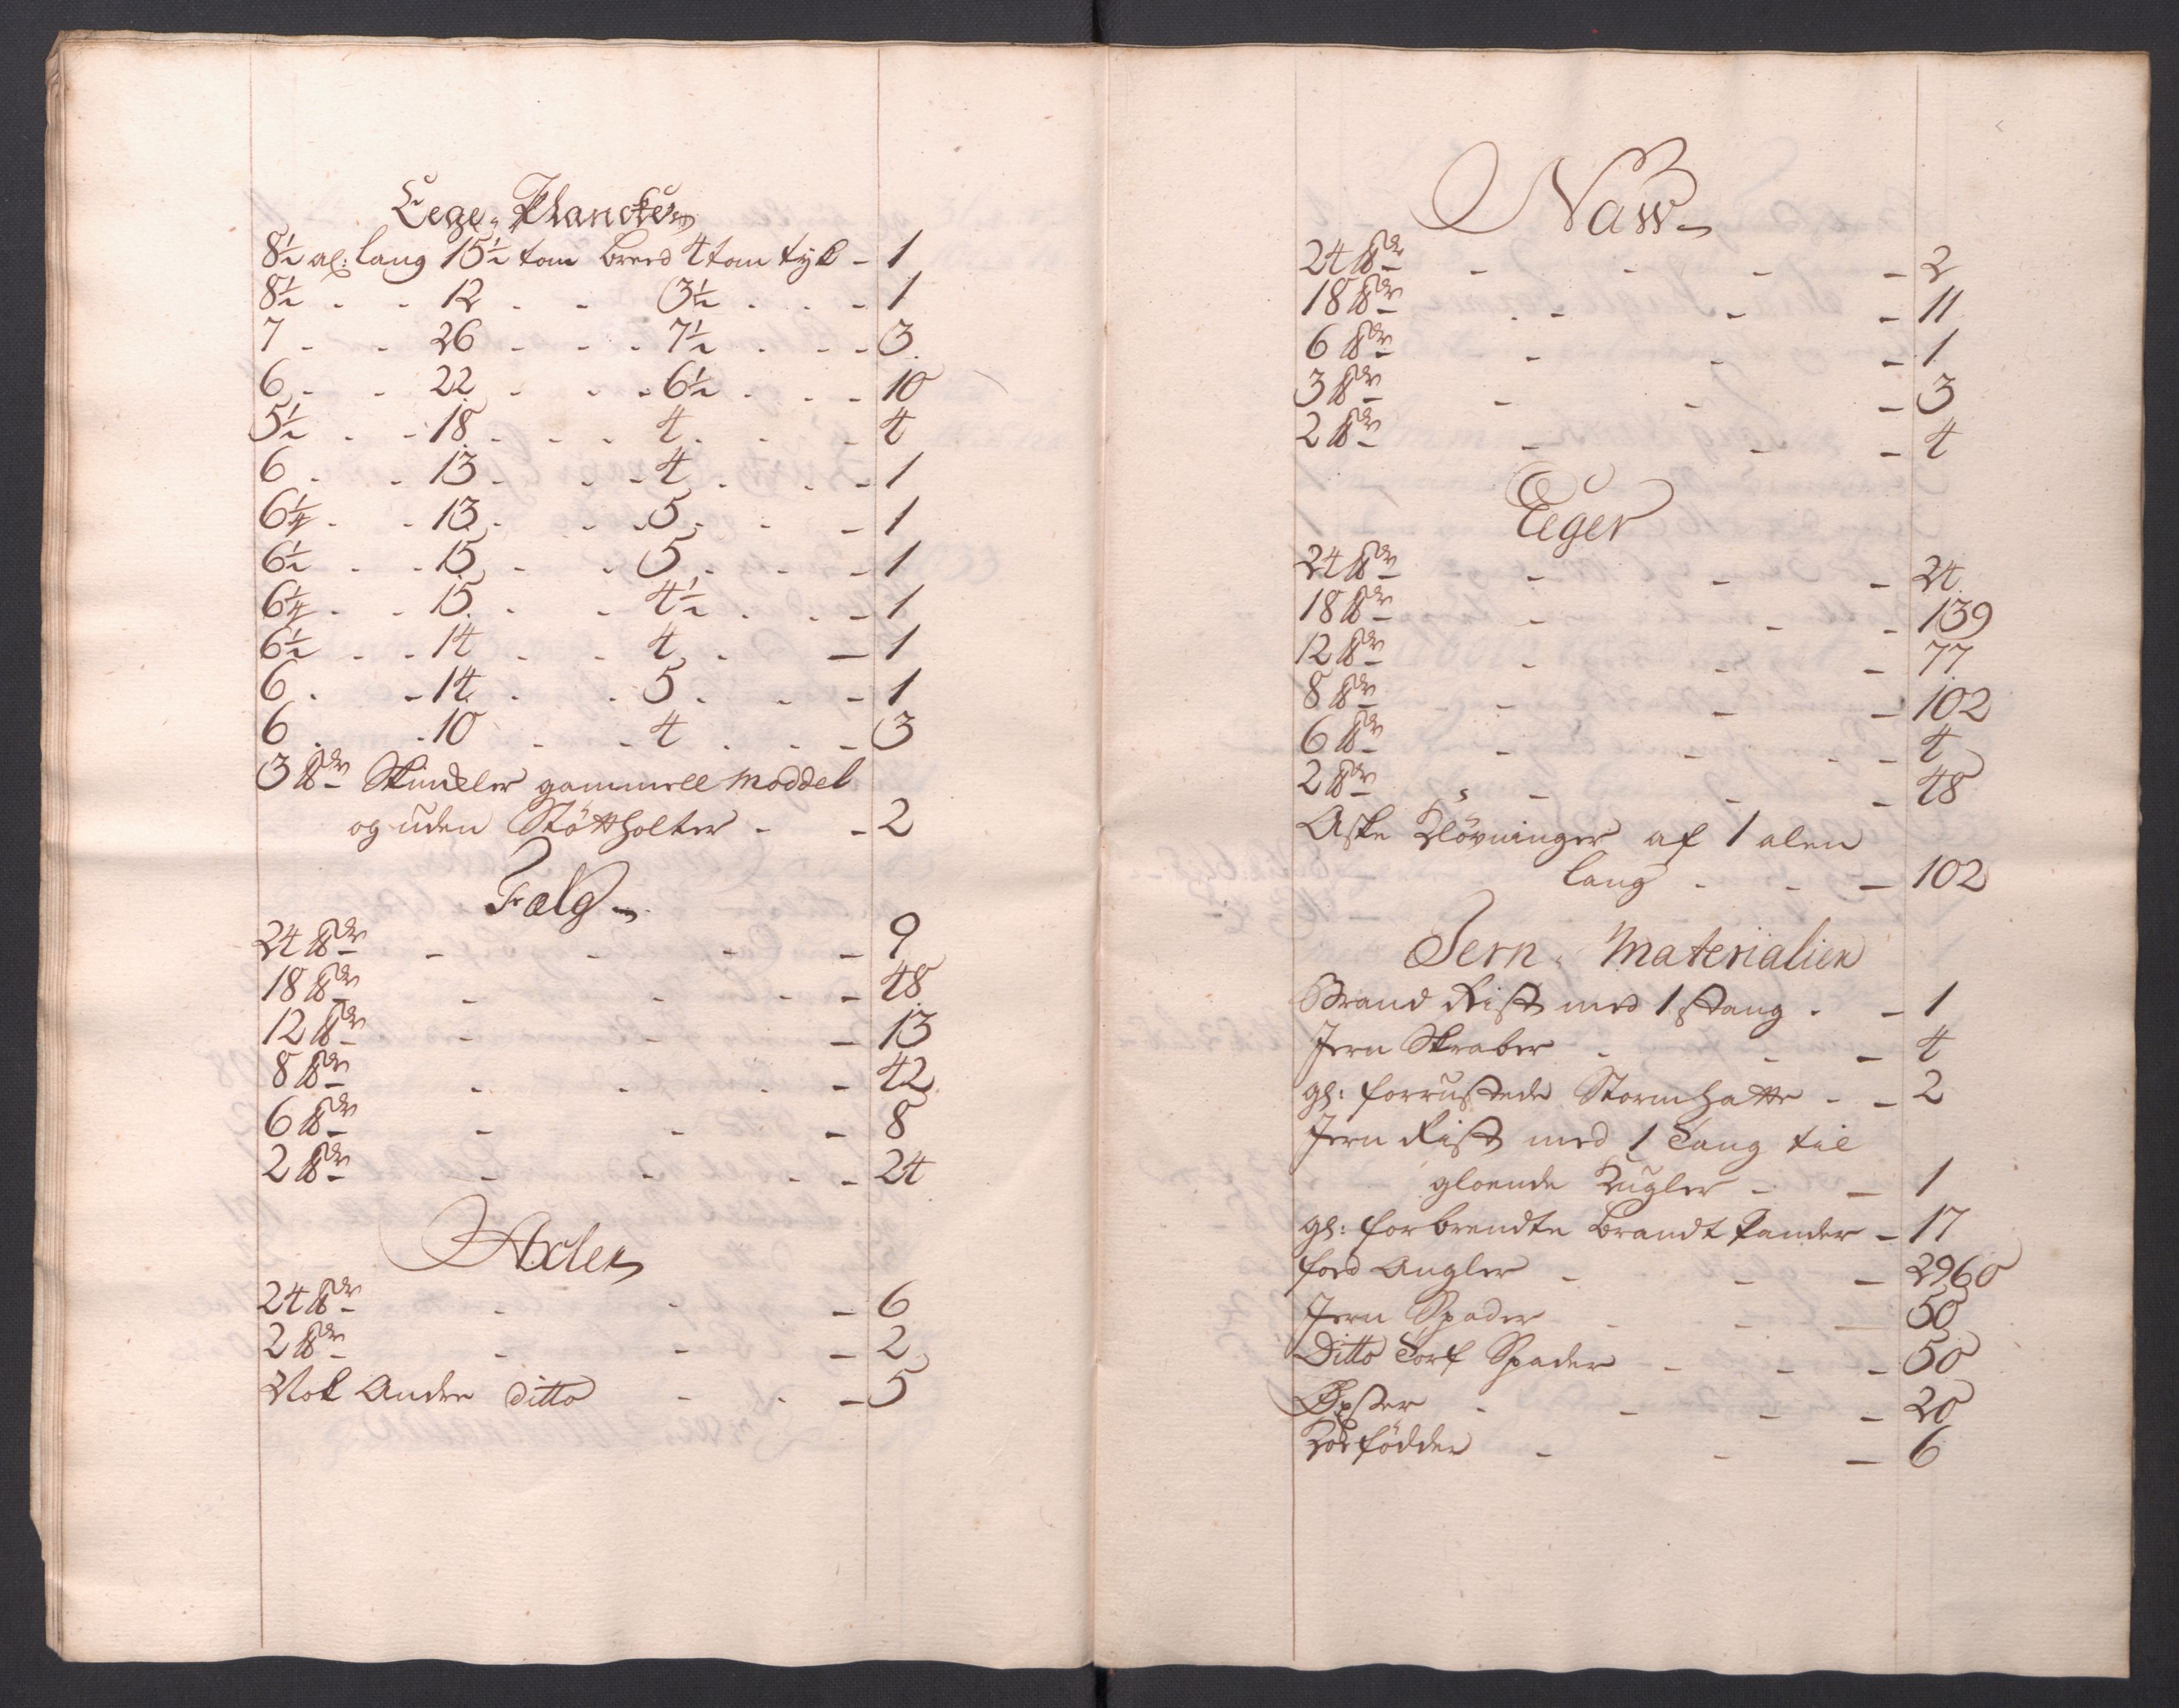 Eege-Plancker
8½ al: lang 15½ tom breed 4 tom tyk - 1
8½ - - 12 - - 3½ - - - 1
7 - - 26 - - - 7½ - - - 3
6 - - 22 - - - 6½ - - - 10
5½ - - 18 - - - 4 - - - 4
6 - - 13 - - - 4 - - 1
6¼ - - 13 - - - 5 - - - 1
6½ - - 15 - - 5 - - - 1
6¼ - - 15 - - 4½ - - - 1
6½ - - 14 - - 4 - - 1
6 - - 14 - - 5 - - - 1
6 - - 10 - - 4 - - - 3
3 ℔der gammell Moddel
og uden Støttholter - - 2
Fælg
24 ℔der - - - - 9
18 ℔der - - - - 48
12 ℔der - - - 13
8 ℔der - - - 42
6 ℔der - - - 8
2 ℔der - - - - 24
Axler
24 ℔der - - - 6
2 ℔der - - - 2
Nok Andre ditto - - - 5
Naw
24 ℔der - - - - 2
18 ℔der - - - - 11
6 ℔der - - - 1
3 ℔der - - - 3
2 ℔der - - - 4
Eeger
24 ℔der - - - 24
18 ℔der - - - 139
12 ℔der - - - 77
8 ℔der - - - 102
6 ℔der - - - - 4
2 ℔der - - - 48
Aske Kløvninger af 1 alen
lang - - - 102
Jern-Materialien
Brand Rist med 1 stang - - 1
Jern Skraber - - - 4
gl: forrustede Stormhatte - - 2
Jern Rist med 1 Tang til
gloende Kugler - - 1
gl: forbrendte Brandt Pander - 17
Foed Angler - - - 2960
Jern Spader - - - 50
Ditto Torf Spader - - - 50
- - - - 20
Koefødder - - - 6